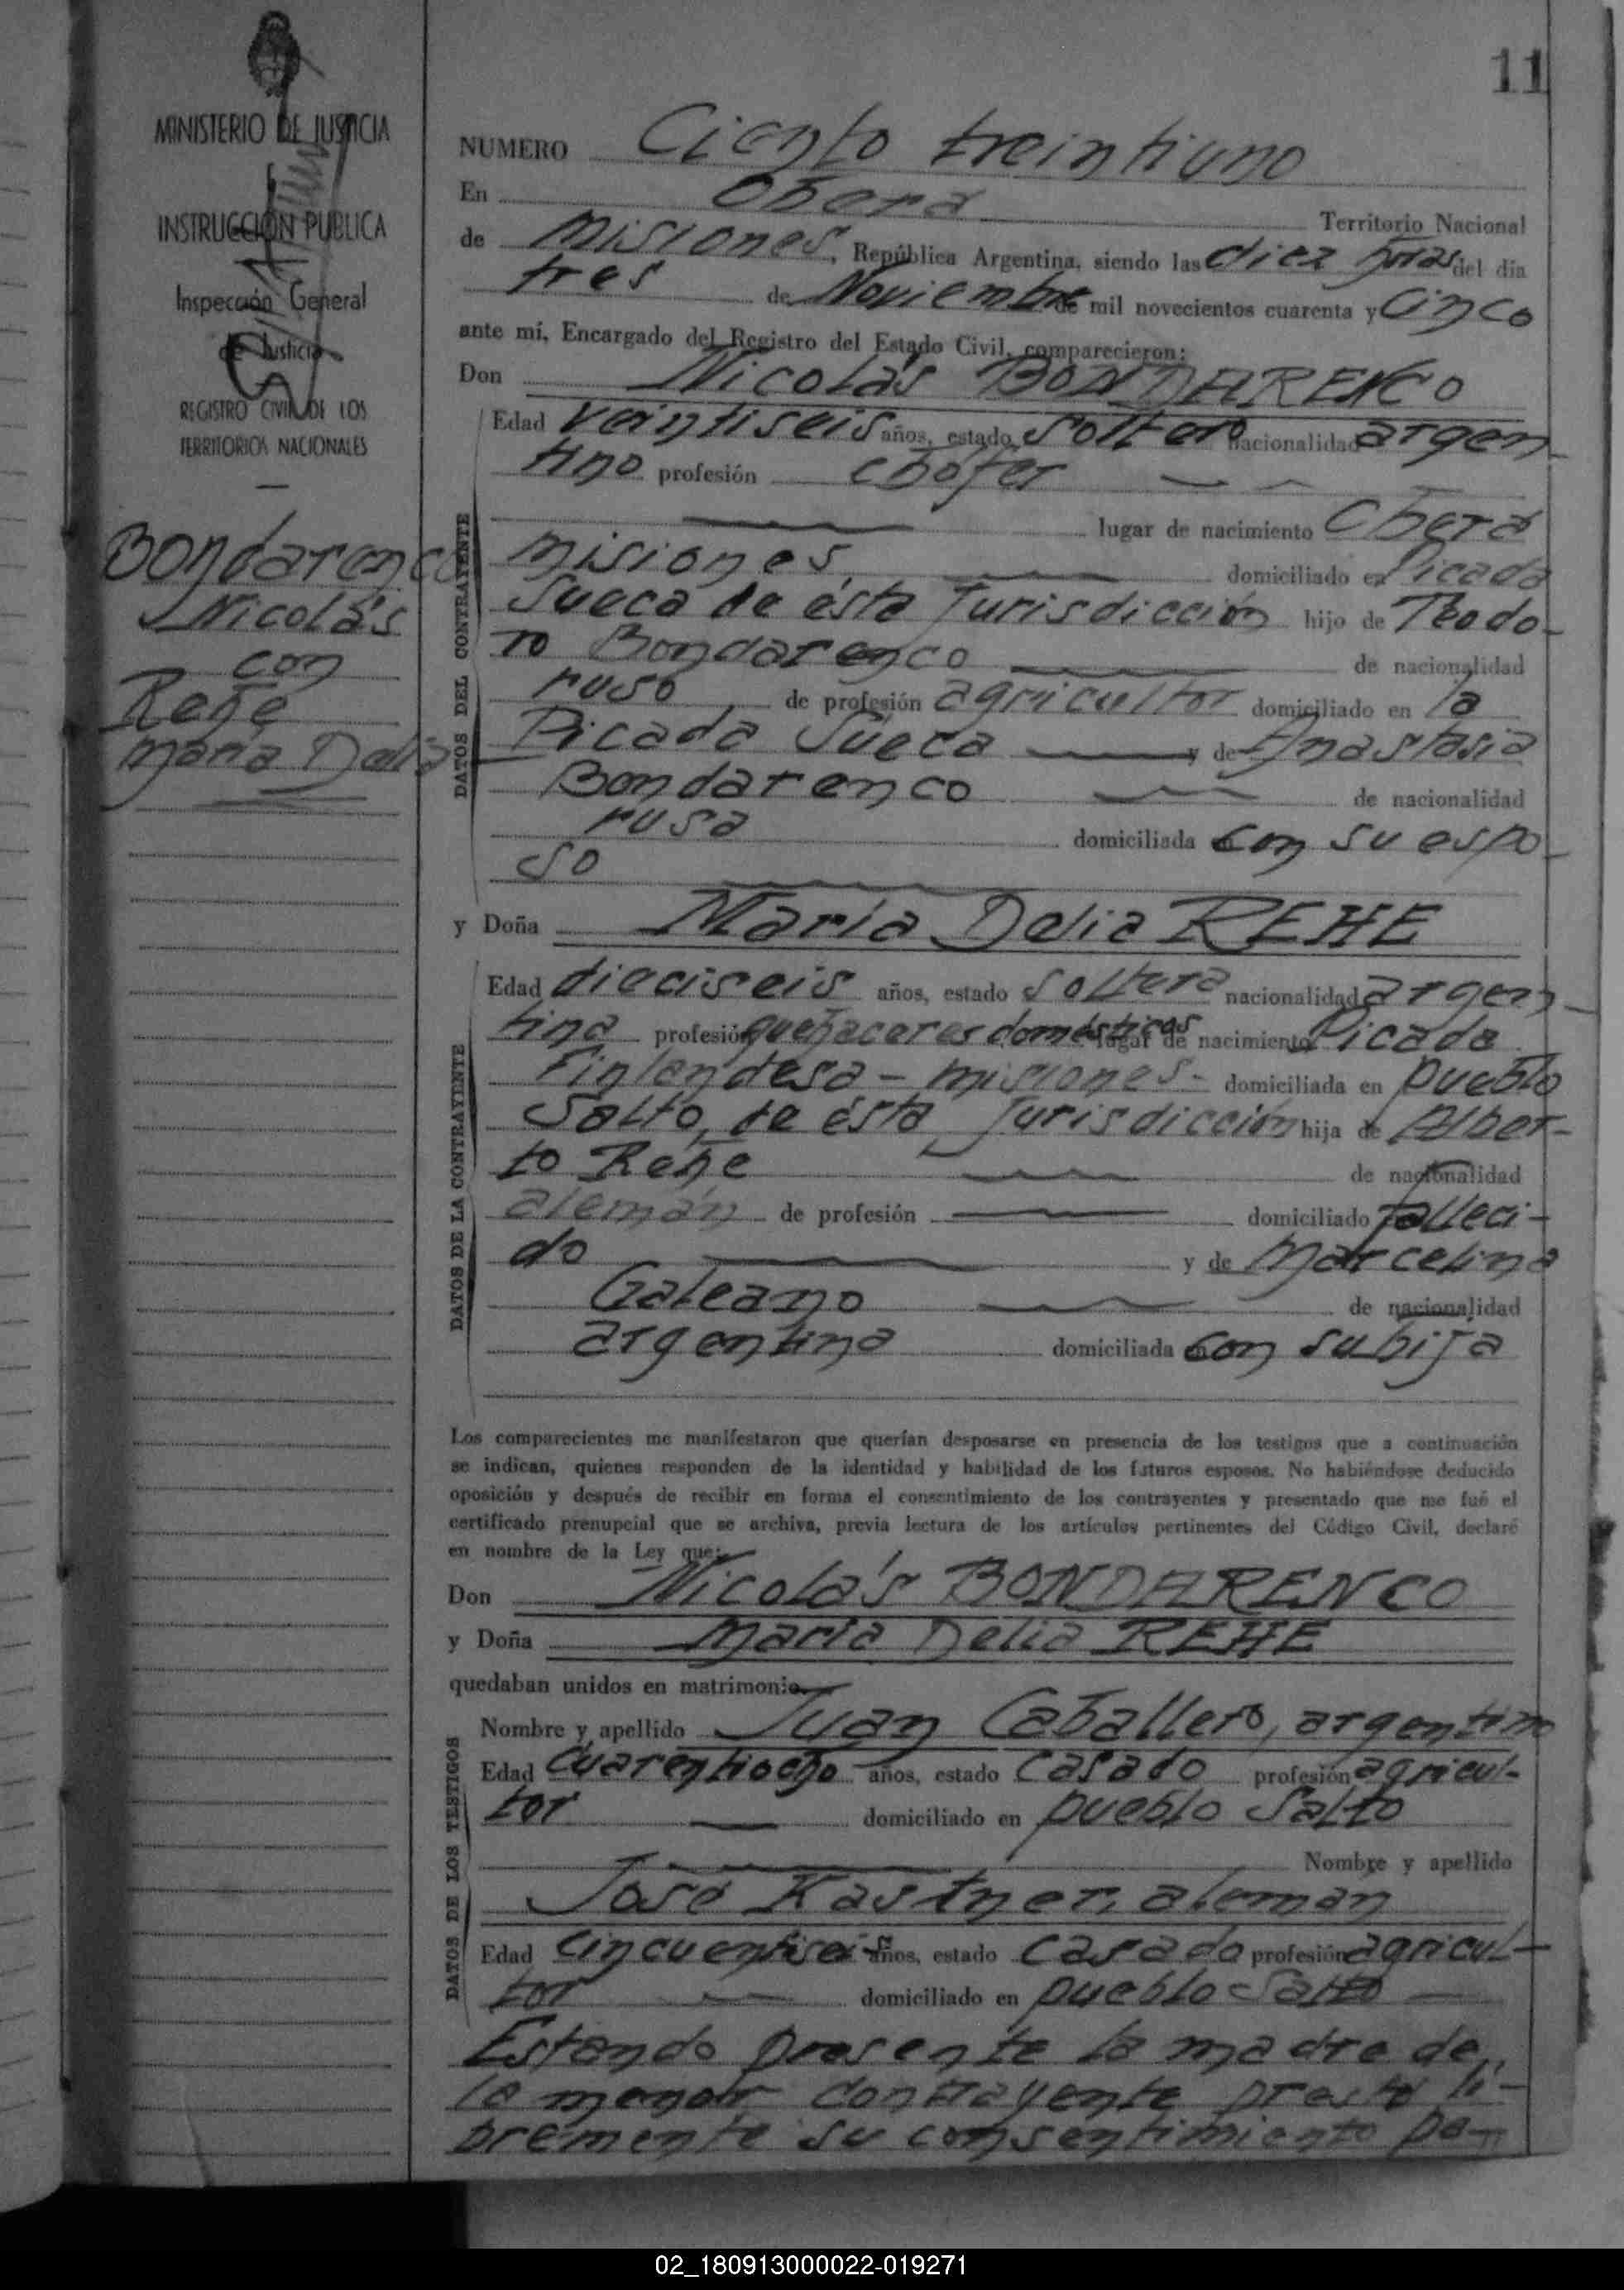 11
MINISTERIO DE JUSTICIA
INSTRUCCIÓN PUBLICA
Inspección General
de Justicia
REGISTRO CIVIL DE LOS
TERRITORIOS NACIONALES
Bondarenco
Nicolás
con
Rehe
María Delia
NUMERO Ciento treintiuno
En Oberá Territorio Nacional
de Misiones, República Argentina, siendo las diez horas del día
tres de Noviembre de mil novecientos cuarenta y Cinco
ante mí, Encargado del Registro del Estado Civil, comparecieron:
Don Nicolás BONDARENCO
DATOS DEL CONTRAYENTE
Edad veintiseis años, estado soltero nacionalidad argen-
tino profesión chofer
lugar de nacimiento Oberá
Misiones, domiciliado en Picada
Sueca de ésta Jurisdicción hijo de Theodo-
ro Bondarenco de nacionalidad
ruso de profesión agricultor domiciliado en la
Picada Sueca y de Anastasia
Bondarenco de nacionalidad
rusa domiciliada con su espo-
so
y Doña María Delia REHE
DATOS DE LA CONTRAYENTE
Edad dieciseis años, estado soltera nacionalidad argen-
tina profesión quehaceres domésticos lugar de nacimiento Picada
Finlandesa - Misiones - domiciliada en pueblo
Salto, de ésta Jurisdicción hija de Alber-
to Rehe de nacionalidad
alemán de profesión domiciliado falleci-
do y de Marcelina
Galeano de nacionalidad
argentina domiciliada con su hija
Los comparecientes me manifestaron que querían desposarse en presencia de los testigos que a continuación
se indican, quienes responden de la identidad y habilidad de los futuros esposos. No habiéndose deducido
oposición y después de recibir en forma el consentimiento de los contrayentes y presentado que me fué el
certificado prenupcial que se archiva, previa lectura de los artículos pertinentes del Código Civil, declaré
en nombre de la Ley que:
Don Nicolás BONDARENCO
y Doña María Delia REHE
quedaban unidos en matrimonio.
DATOS DE LOS TESTIGOS
Nombre y apellido Juan Caballero, argentino
Edad cuarentiocho años, estado casado profesión agricul-
tor domiciliado en pueblo Salto
Nombre y apellido
José Kastner, alemán
Edad cincuentiseis años, estado casado profesión agricul-
tor domiciliado en pueblo Salto
Estando presente la madre de
la menor contrayente prestó li-
bremente su consentimiento pa-
02_180913000022-019271